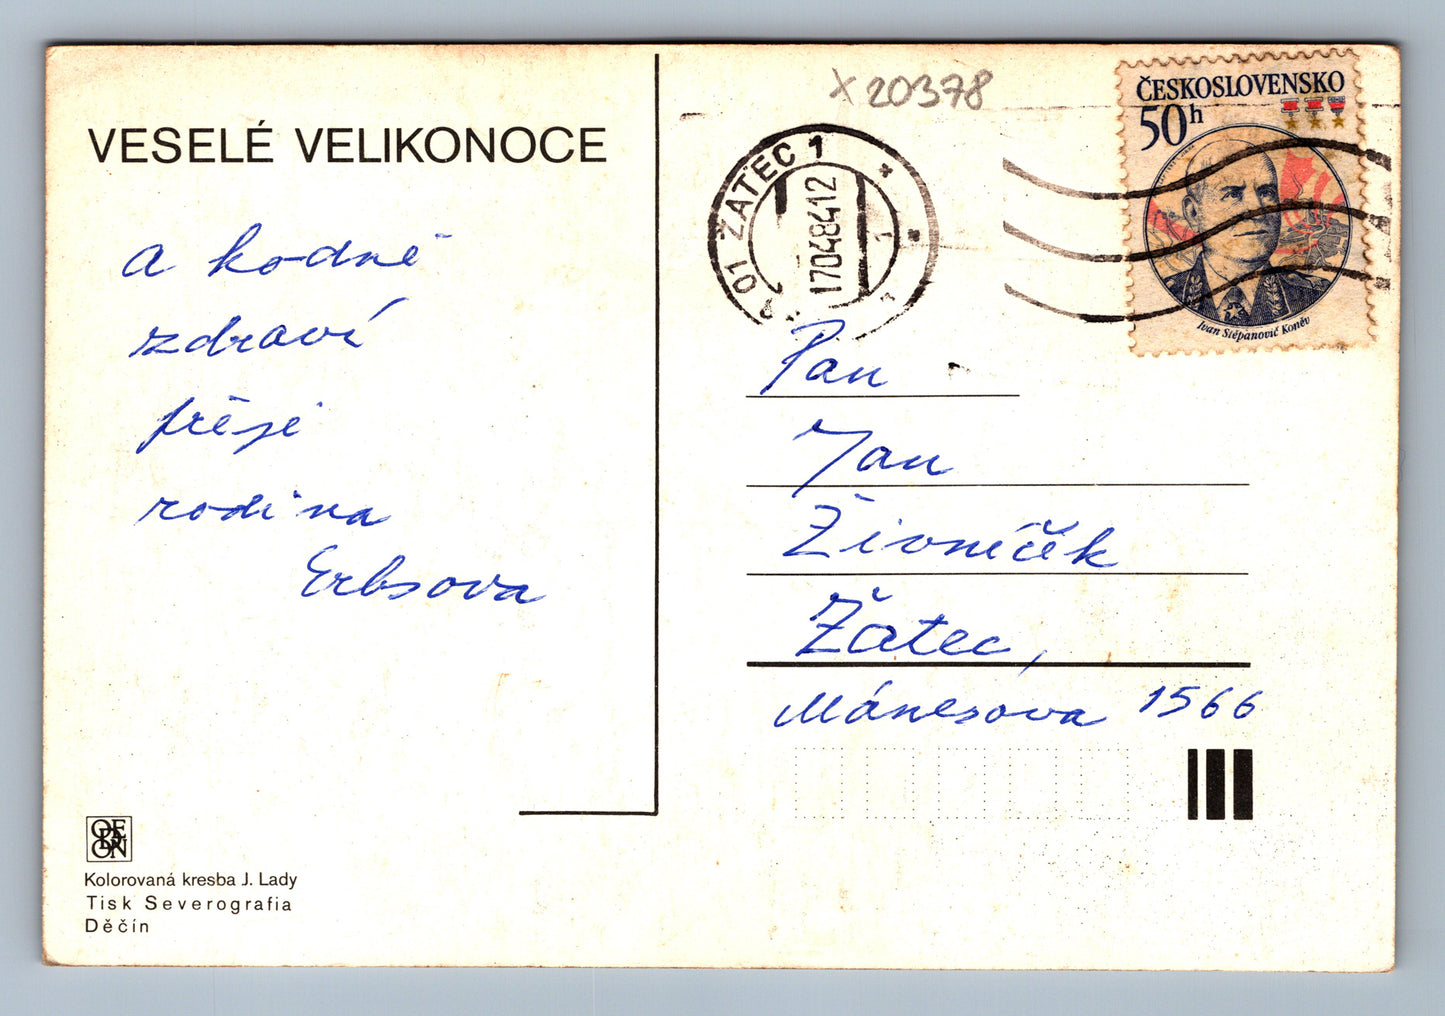 X 20378
ČESKOSLOVENSKO
50h
Ivan Stěpanovič Koněv
01 ŽATEC 1
17.04.84.12
VESELÉ VELIKONOCE
a hodně
zdraví
přeje
rodina
Erbsova
Pan
Jan
Živníček
Žatec,
Mánesova 1566
Kolorovaná kresba J. Lady
Tisk Severografia
Děčín